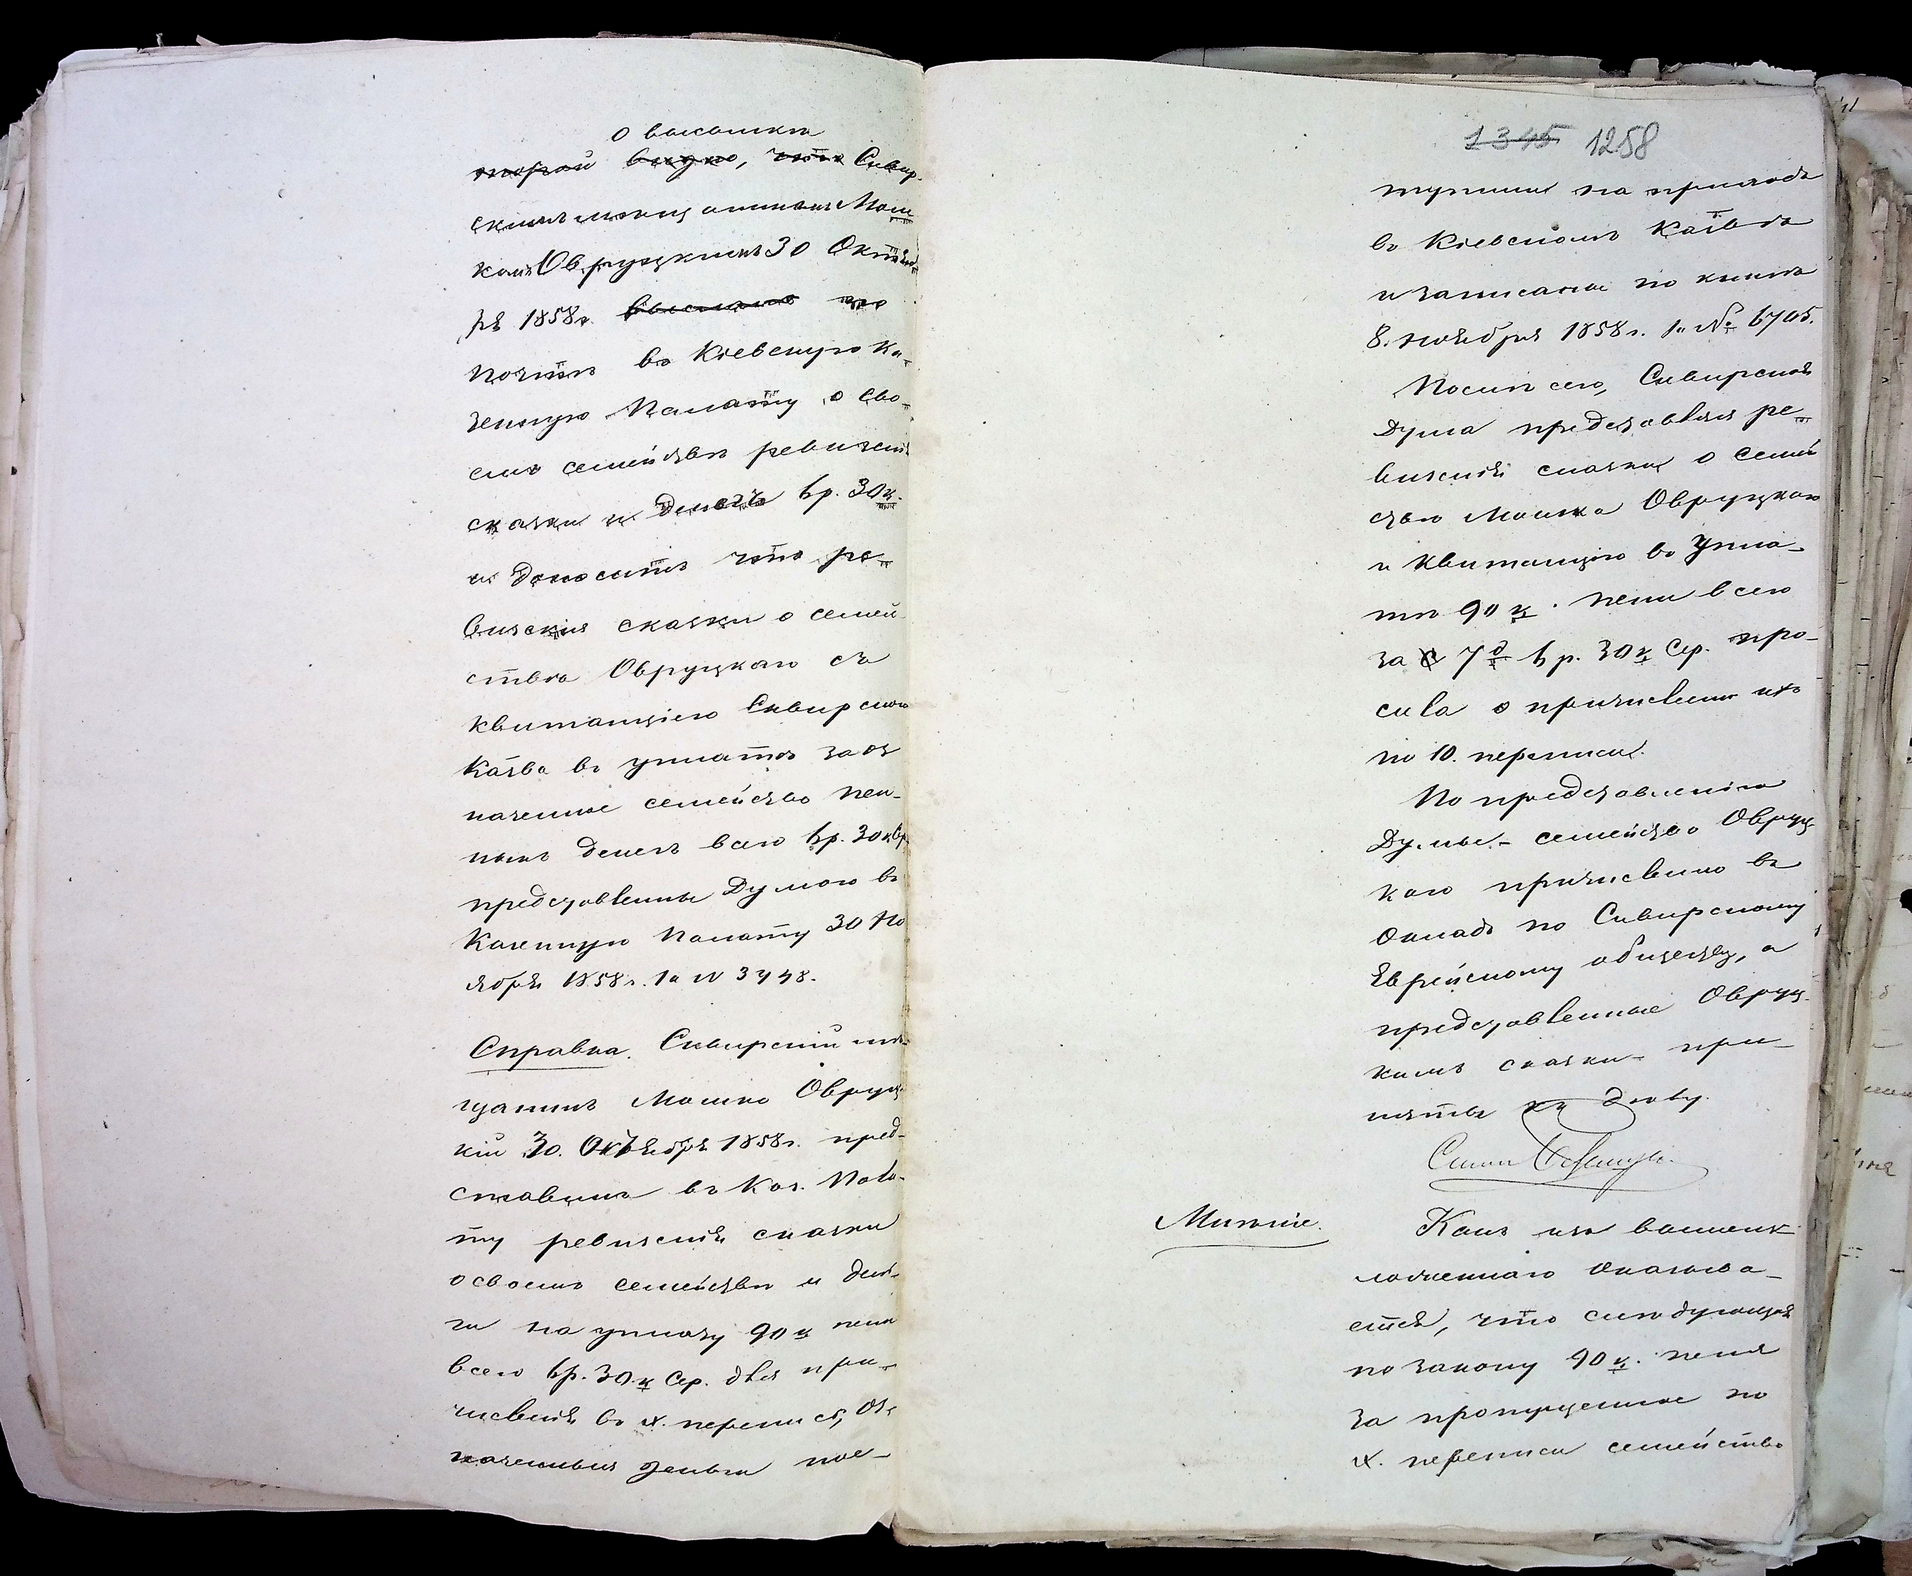 о высылкѣ
торой видно, что Сквир-
скимъ мѣщаниномъ Мош
комъ Овруцкимъ 30 Октяб-
рѣ 1858 г. выслано по
почтѣ въ Кіевскую Ка-
зенную Палату о сво-
емъ семействѣ ревизскія
сказки и деньги 6 р. 30 к.
и доноситъ что ре-
визскія сказки о семей
ствѣ Овруцкаго съ
квитанціею Сквирскаго
Казн-ва въ уплатѣ за оз
наченное семейство пен-
ныхъ денегъ всего 6 р. 30 к. Сер.
представлены Думою въ
Казенную Палату 30 Но
ября 1858 г. за N 3448.
Справка. Сквирскій мѣ-
щанинъ Мошко Овруц-
кій 30. Октября 1858 г. пред-
ставилъ въ Каз. Пала-
ту ревизскія сказки
о своемъ семействѣ и день-
ги на уплату 90 к пени
всего 6 р. 30. к Сер. для при-
численія въ X. перепись, Оз-
наченныя деньги пос-
1345 1258
тупили на приходъ
въ Кіевскомъ Каз-вѣ
и записаны по книгѣ
8. ноября 1858 г. за № 6705.
Послѣ сего, Сквирская
Дума представляя ре-
визскія сказки о семей
ствѣ Мошка Овруцкаго
и квитанцію въ Упла-
тѣ 90 к. пени всего
за 7 д 6 р. 30 к Сер. про-
сила о причисленіи ихъ
по 10. переписи.
По представленію
Думы - семейство Овруц
каго причислено въ
Окладъ по Сквирскому
Еврейскому обществу, а
представленныя Овруц-
кимъ сказки - при-
няты къ дѣлу.
Мнѣніе.
Какъ изъ вышеиз-
ложеннаго оказыва-
ется, что слѣдующая
по закону 90 к. пеня
за пропущенное по
X. переписи семейство